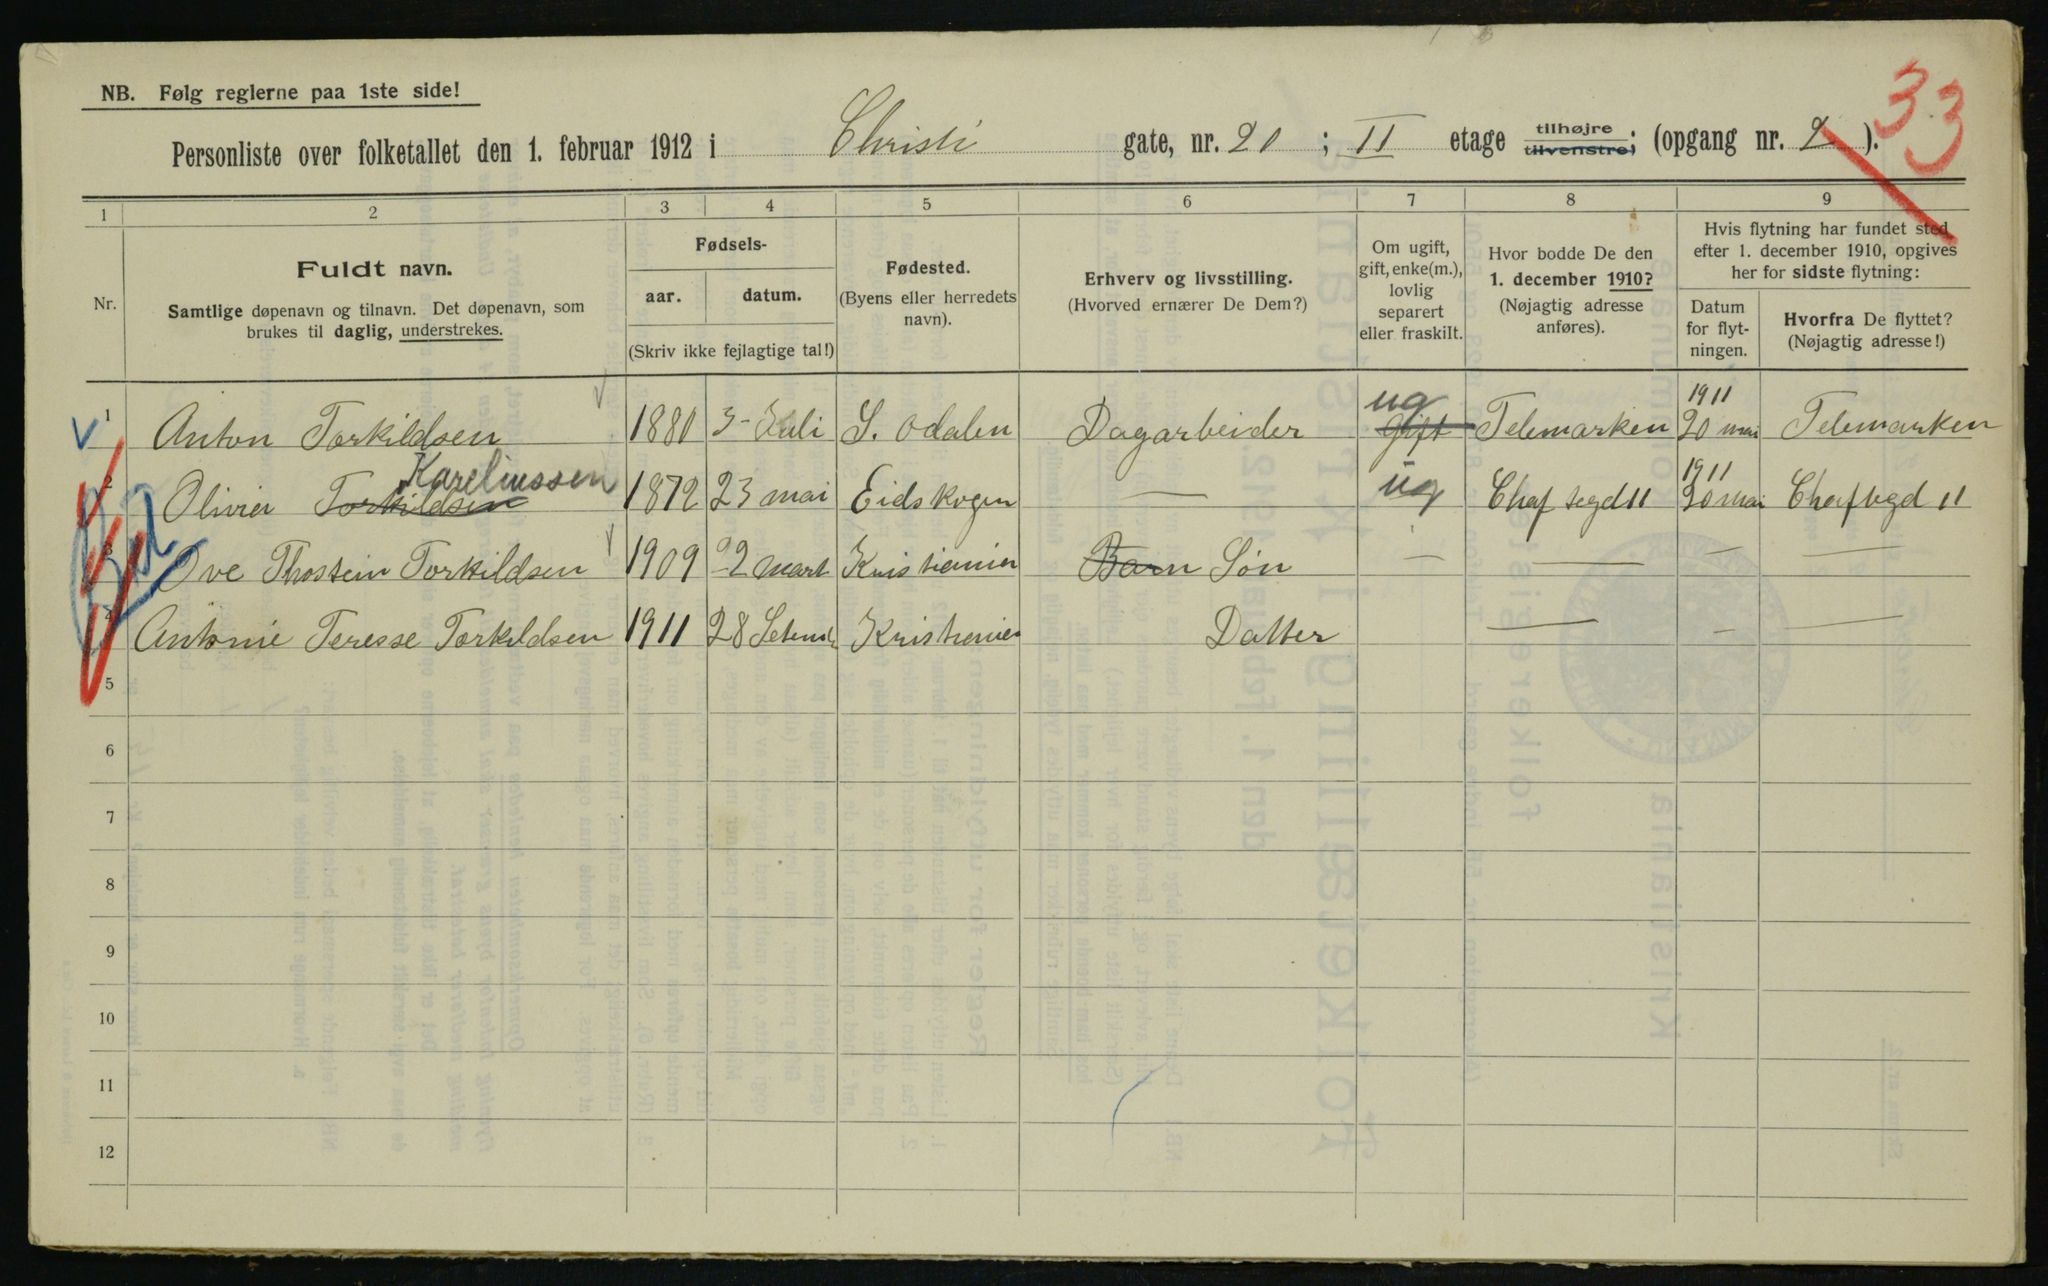 33
NB. Følg reglerne paa 1ste side!
Personliste over folketallet den 1. februar 1912 i Christi gate, nr. 20 ; II etage tilhøjre tilvenstre; (opgang nr. 2 ).
1 2 3 4 5 6 7 8 9
Nr.
Fuldt navn.
Samtlige døpenavn og tilnavn. Det døpenavn, som
brukes til daglig, understrekes.
Fødsels-
aar. datum.
(Skriv ikke fejlagtige tal!)
Fødested.
(Byens eller herredets
navn).
Erhverv og livsstilling.
(Hvorved ernærer De Dem?)
Om ugift,
gift, enke(m.),
lovlig
separert
eller fraskilt.
Hvor bodde De den
1. december 1910?
(Nøjagtig adresse
anføres).
Hvis flytning har fundet sted
efter 1. december 1910, opgives
her for sidste flytning:
Datum
for flyt-
ningen.
Hvorfra De flyttet?
(Nøjagtig adresse!)
1 Anton Torkildsen 1880 3-Juli S. Odalen Dagarbeider Gift ug Telemarken 1911 20 mai Telemarken
2 Olivia Torkildsen Kareliussen 1872 23 mai Eidskogen — ug Chaf segd 11 1911 20 mai Chafbgd 11
3 Ove Thostein Torkildsen 1909 22 mart Kristiania Barn Søn — — — —
4 Antonie Teresse Torkildsen 1911 28 Setemb Kristiania Datter — — —
5
6
7
8
9
10
11
12